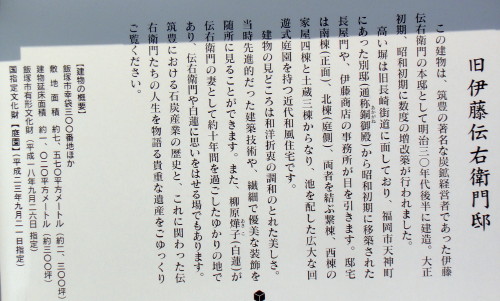 旧伊藤伝右衛門邸
この建物は、筑豊の著名な炭鉱経営者であった伊藤
伝右衛門の本邸として明治三〇年代後半に建造。大正
初期、昭和初期に数度の増改築が行われました。
高い塀は旧長崎街道に面しており、福岡市天神町
にあった別邸（通称銅御殿）から昭和初期に移築された
長屋門や、伊藤商店の事務所が目を引きます。邸宅
は南棟（正面）、北棟（庭側）、両者を結ぶ繋棟、西棟の
家屋四棟と土蔵三棟からなり、池を配した広大な回
遊式庭園を持つ近代和風住宅です。
建物の見どころは和洋折衷の調和のとれた美しさ。
当時先進的だった建築技術や、繊細で優美な装飾を
随所に見ることができます。また、柳原燁子（白蓮）が
伝右衛門の妻として約十年間を過ごしたゆかりの地で
あり、伝右衛門や白蓮に思いをはせる場でもあります。
筑豊における石炭産業の歴史と、これに関わった伝
右衛門たちの人生を物語る貴重な遺産をごゆっくり
ご覧ください。
【建物の概要】
飯塚市幸袋三〇〇番地ほか
敷地面積 約七、五七〇平方メートル（約二、三〇〇坪）
建物延床面積 約一、〇二〇平方メートル（約三〇〇坪）
飯塚市有形文化財（平成一八年九月二六日 指定）
国指定文化財【庭園】（平成二三年九月二一日 指定）